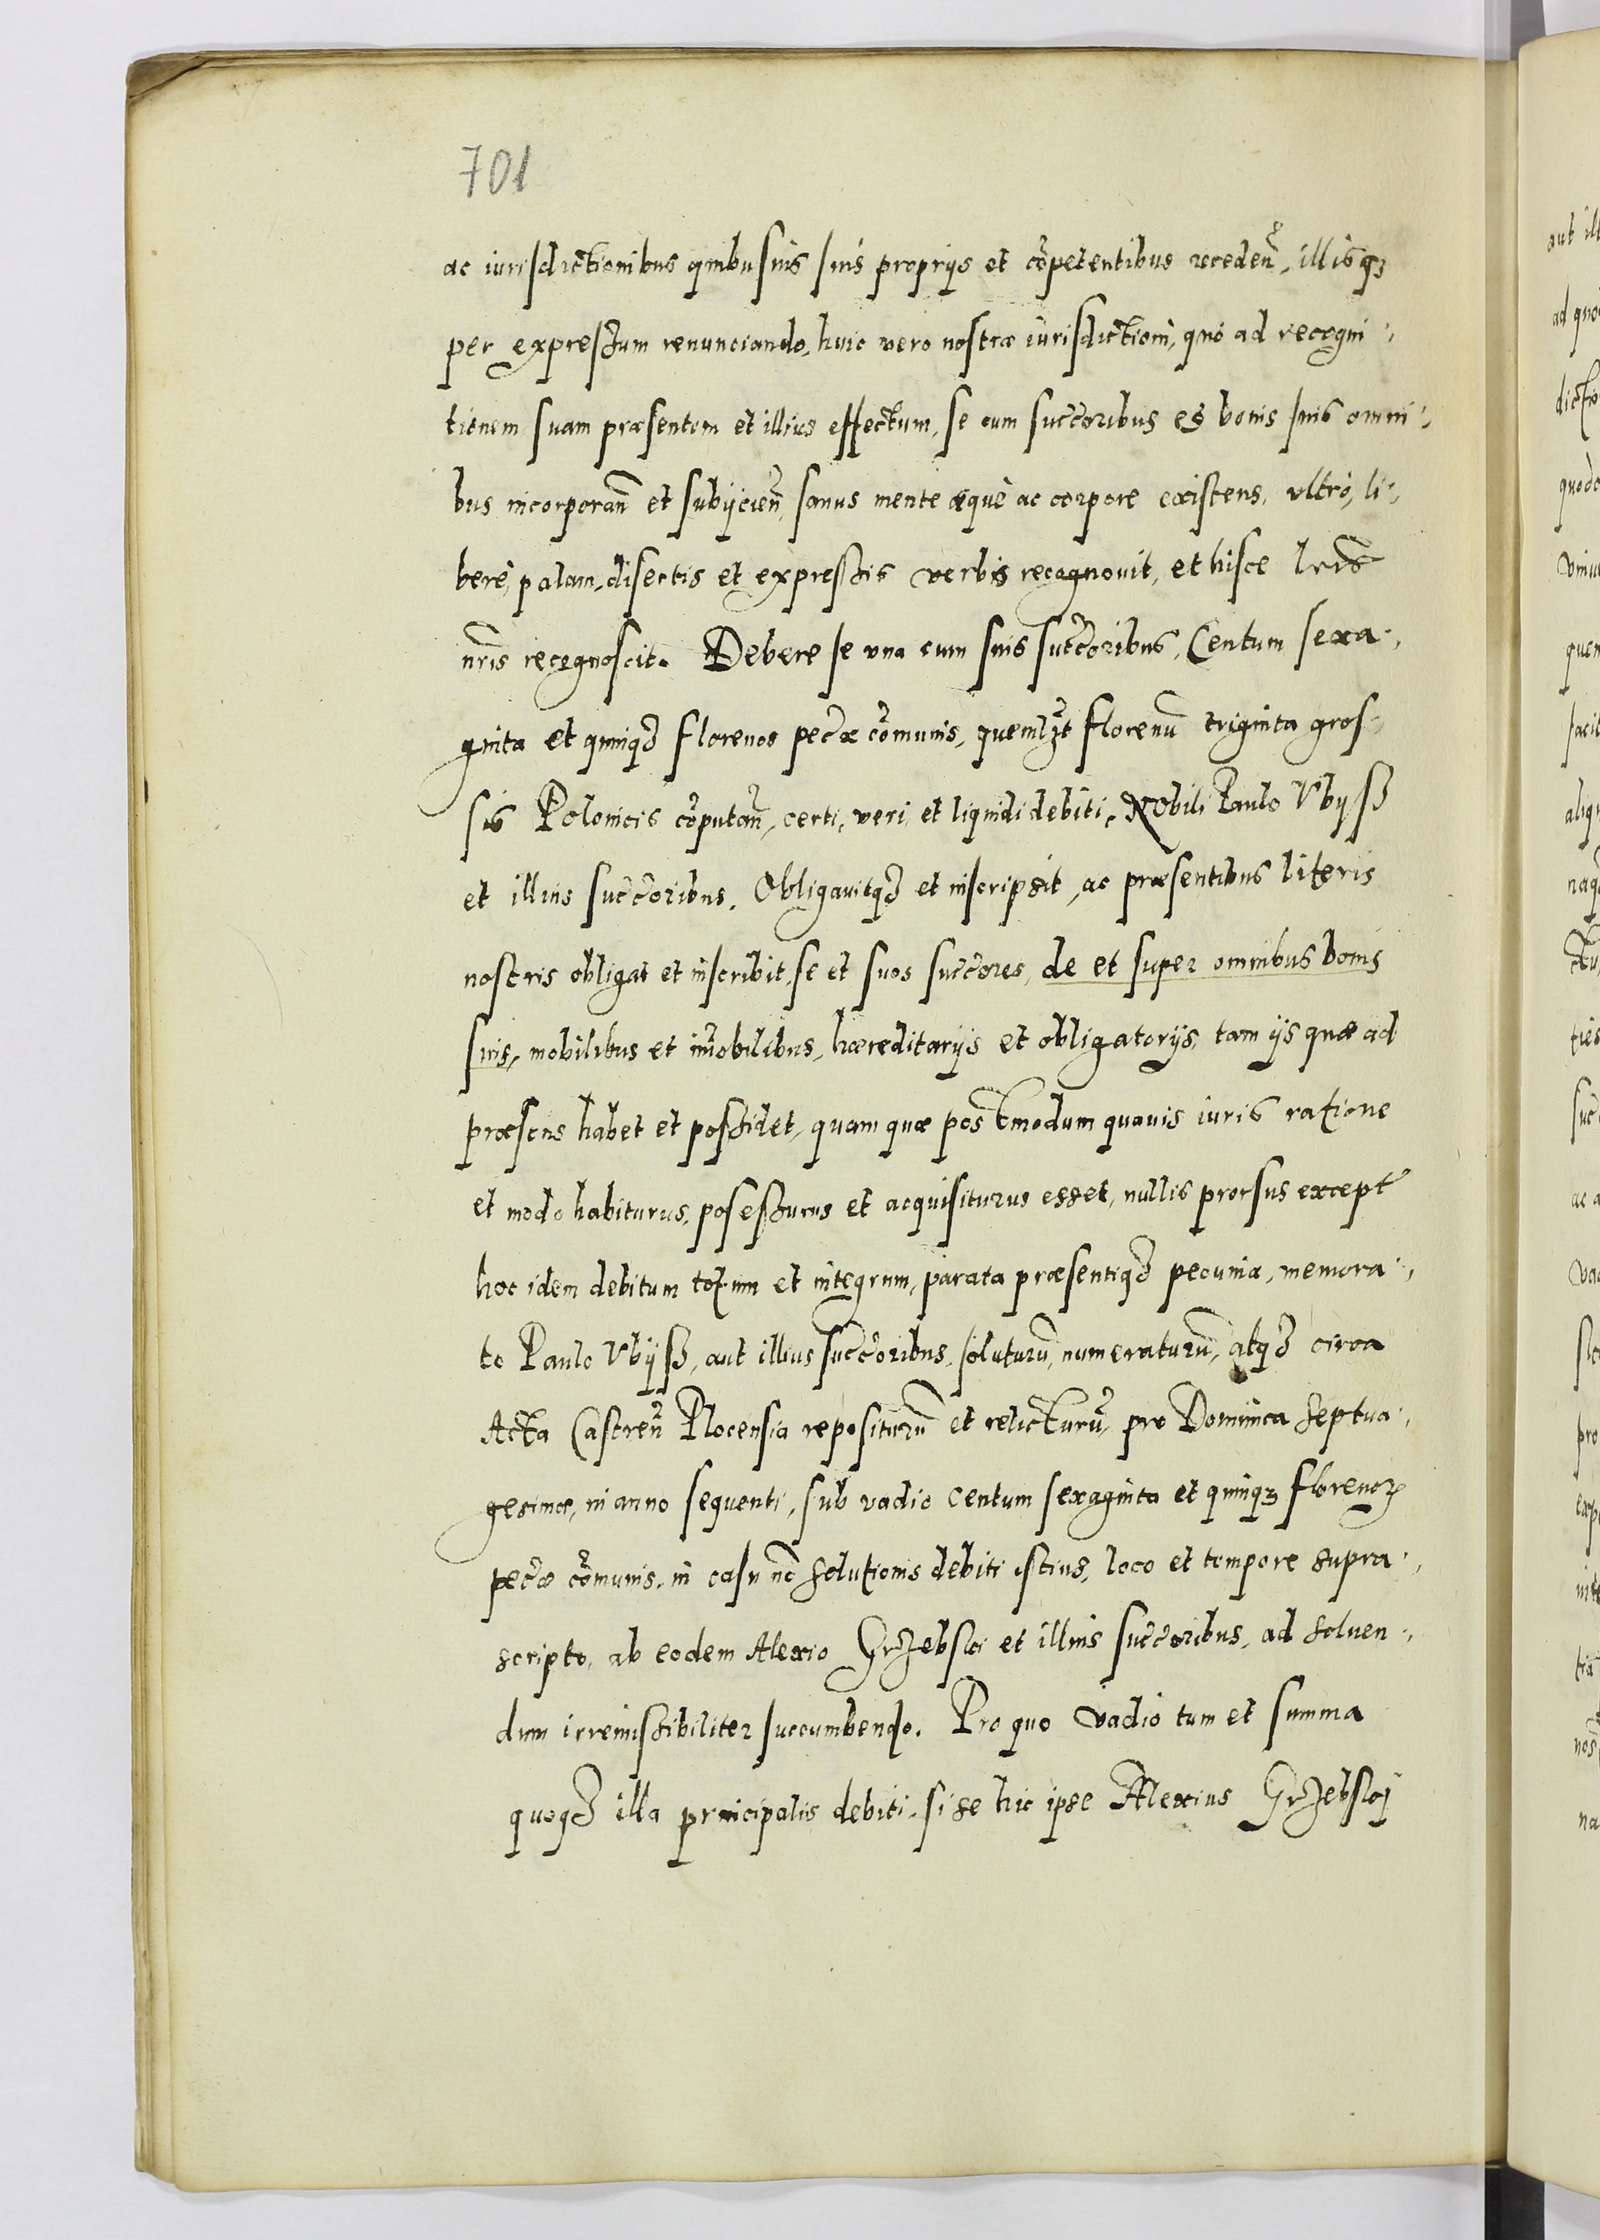 701
ac iurisdictionibus quibusuis suis proprijs et cõpetentibus recedeñ, illisq3
per expressum renunciando, huic vero nostræ iurisdictioni, quò ad recogni-
tionem suam præsentem et illius effectum, se cum succõribus et bonis suis omni-
bus incorporañ et subijcieñ, sanus mente æquè ac corpore existens, vltrò, li-
berè, palam, disertis et expressis verbis recognouit, et hisce
nr̃is recognoscit. Debere se vna cum suis succõribus, Centum sexa-
ginta et quinq3 florenos pec̃æ cõmunis, quemlz̃t florenũ triginta gros-
sis Polonicis cõputañ, certi, veri et liquidi debiti, Nobili Paulo Vbyß
et illius succõribus. Obligauitq3 et inscripsit, ac præsentibus literis
nostris obligat et inscribit, se et suos succõres, de et super omnibus bonis
suis, mobilibus et im̃obilibus, hæreditarijs et obligatorijs, tam ijs quæ ad
præsens habet et possidet, quam quæ postmodum quouis iuris ratione
et modo habiturus, posessurus et acquisiturus esset, nullis prorsus except̃
hoc idem debitum totum et integrum, parata præsentiq3 pecunia, memora-
to Paulo Vbyß, aut illius succõribus, soluturũ, numeraturũ, atq3 circa
Acta Castreñ Plocensia repositurũ et relicturũ, pro Dominica Septua-
gesimæ, in anno sequenti, sub vadio centum sexaginta et quinq3 florenoꝝ
pec̃æ cõmunis, in casu nõ solutionis debiti istius, loco et tempore supra-
scripto, ab eodem Alexio Grzebski et illius succõribus, ad soluen-
dum irremissibiliter succumbendo. Pro quo vadio tum et summa
quoq3 illa principalis debiti, si se hic ipse Alexius Grzebskj